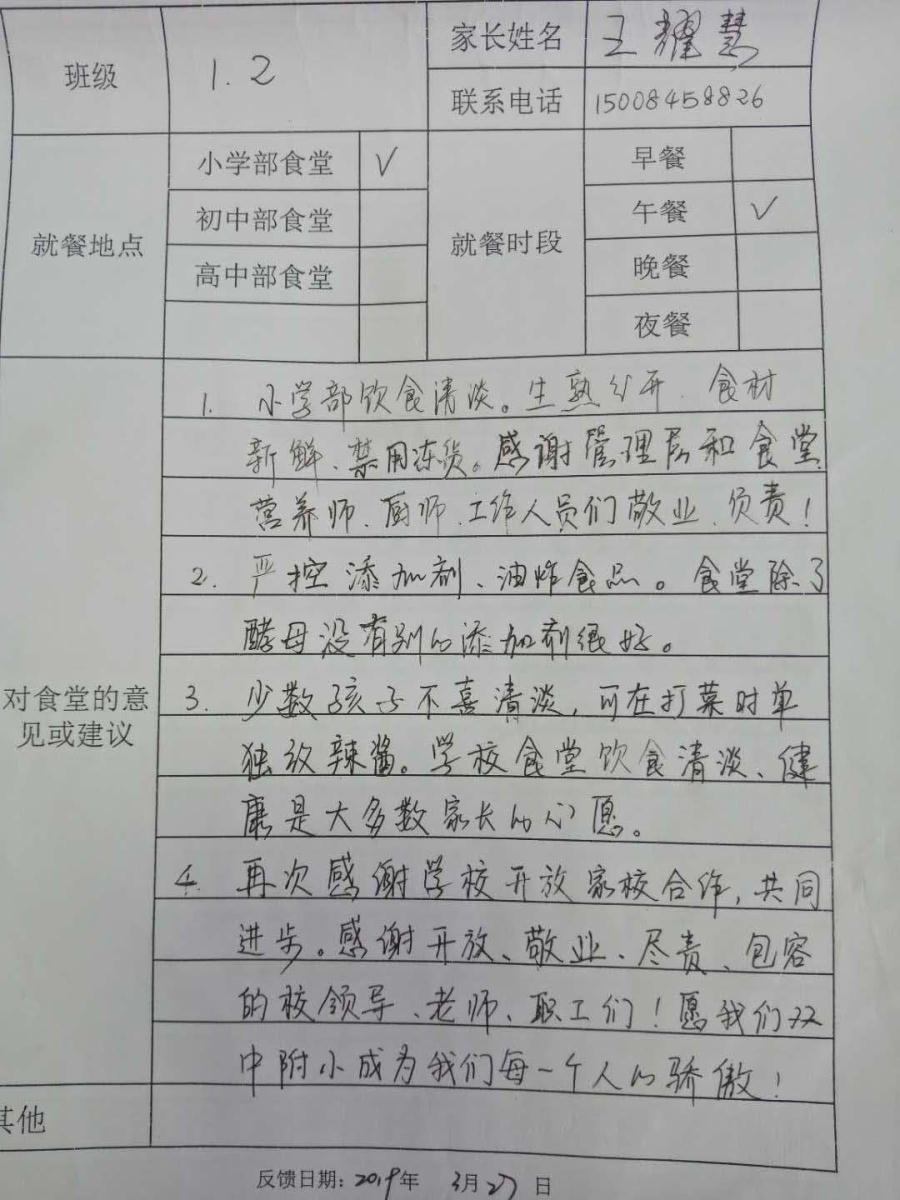 班级 1.2 家长姓名 王耀慧
联系电话 15008458826
就餐地点 小学部食堂 √ 就餐时段 早餐
初中部食堂 午餐 √
高中部食堂 晚餐
夜餐
对食堂的意见或建议
1. 小学部饮食清淡。生熟分开、食材
新鲜、禁用冻货。感谢管理层和食堂
营养师、厨师、工作人员们敬业、负责！
2. 严控添加剂、油炸食品。食堂除了
酵母没有别的添加剂很好。
3. 少数孩子不喜清淡，可在打菜时单
独放辣酱。学校食堂饮食清淡、健
康是大多数家长的心愿。
4. 再次感谢学校开放家校合作，共同
进步。感谢开放、敬业、尽责、包容
的校领导、老师、职工们！愿我们双
中附小成为我们每一个人的骄傲！
其他
反馈日期：2019年 3月27日